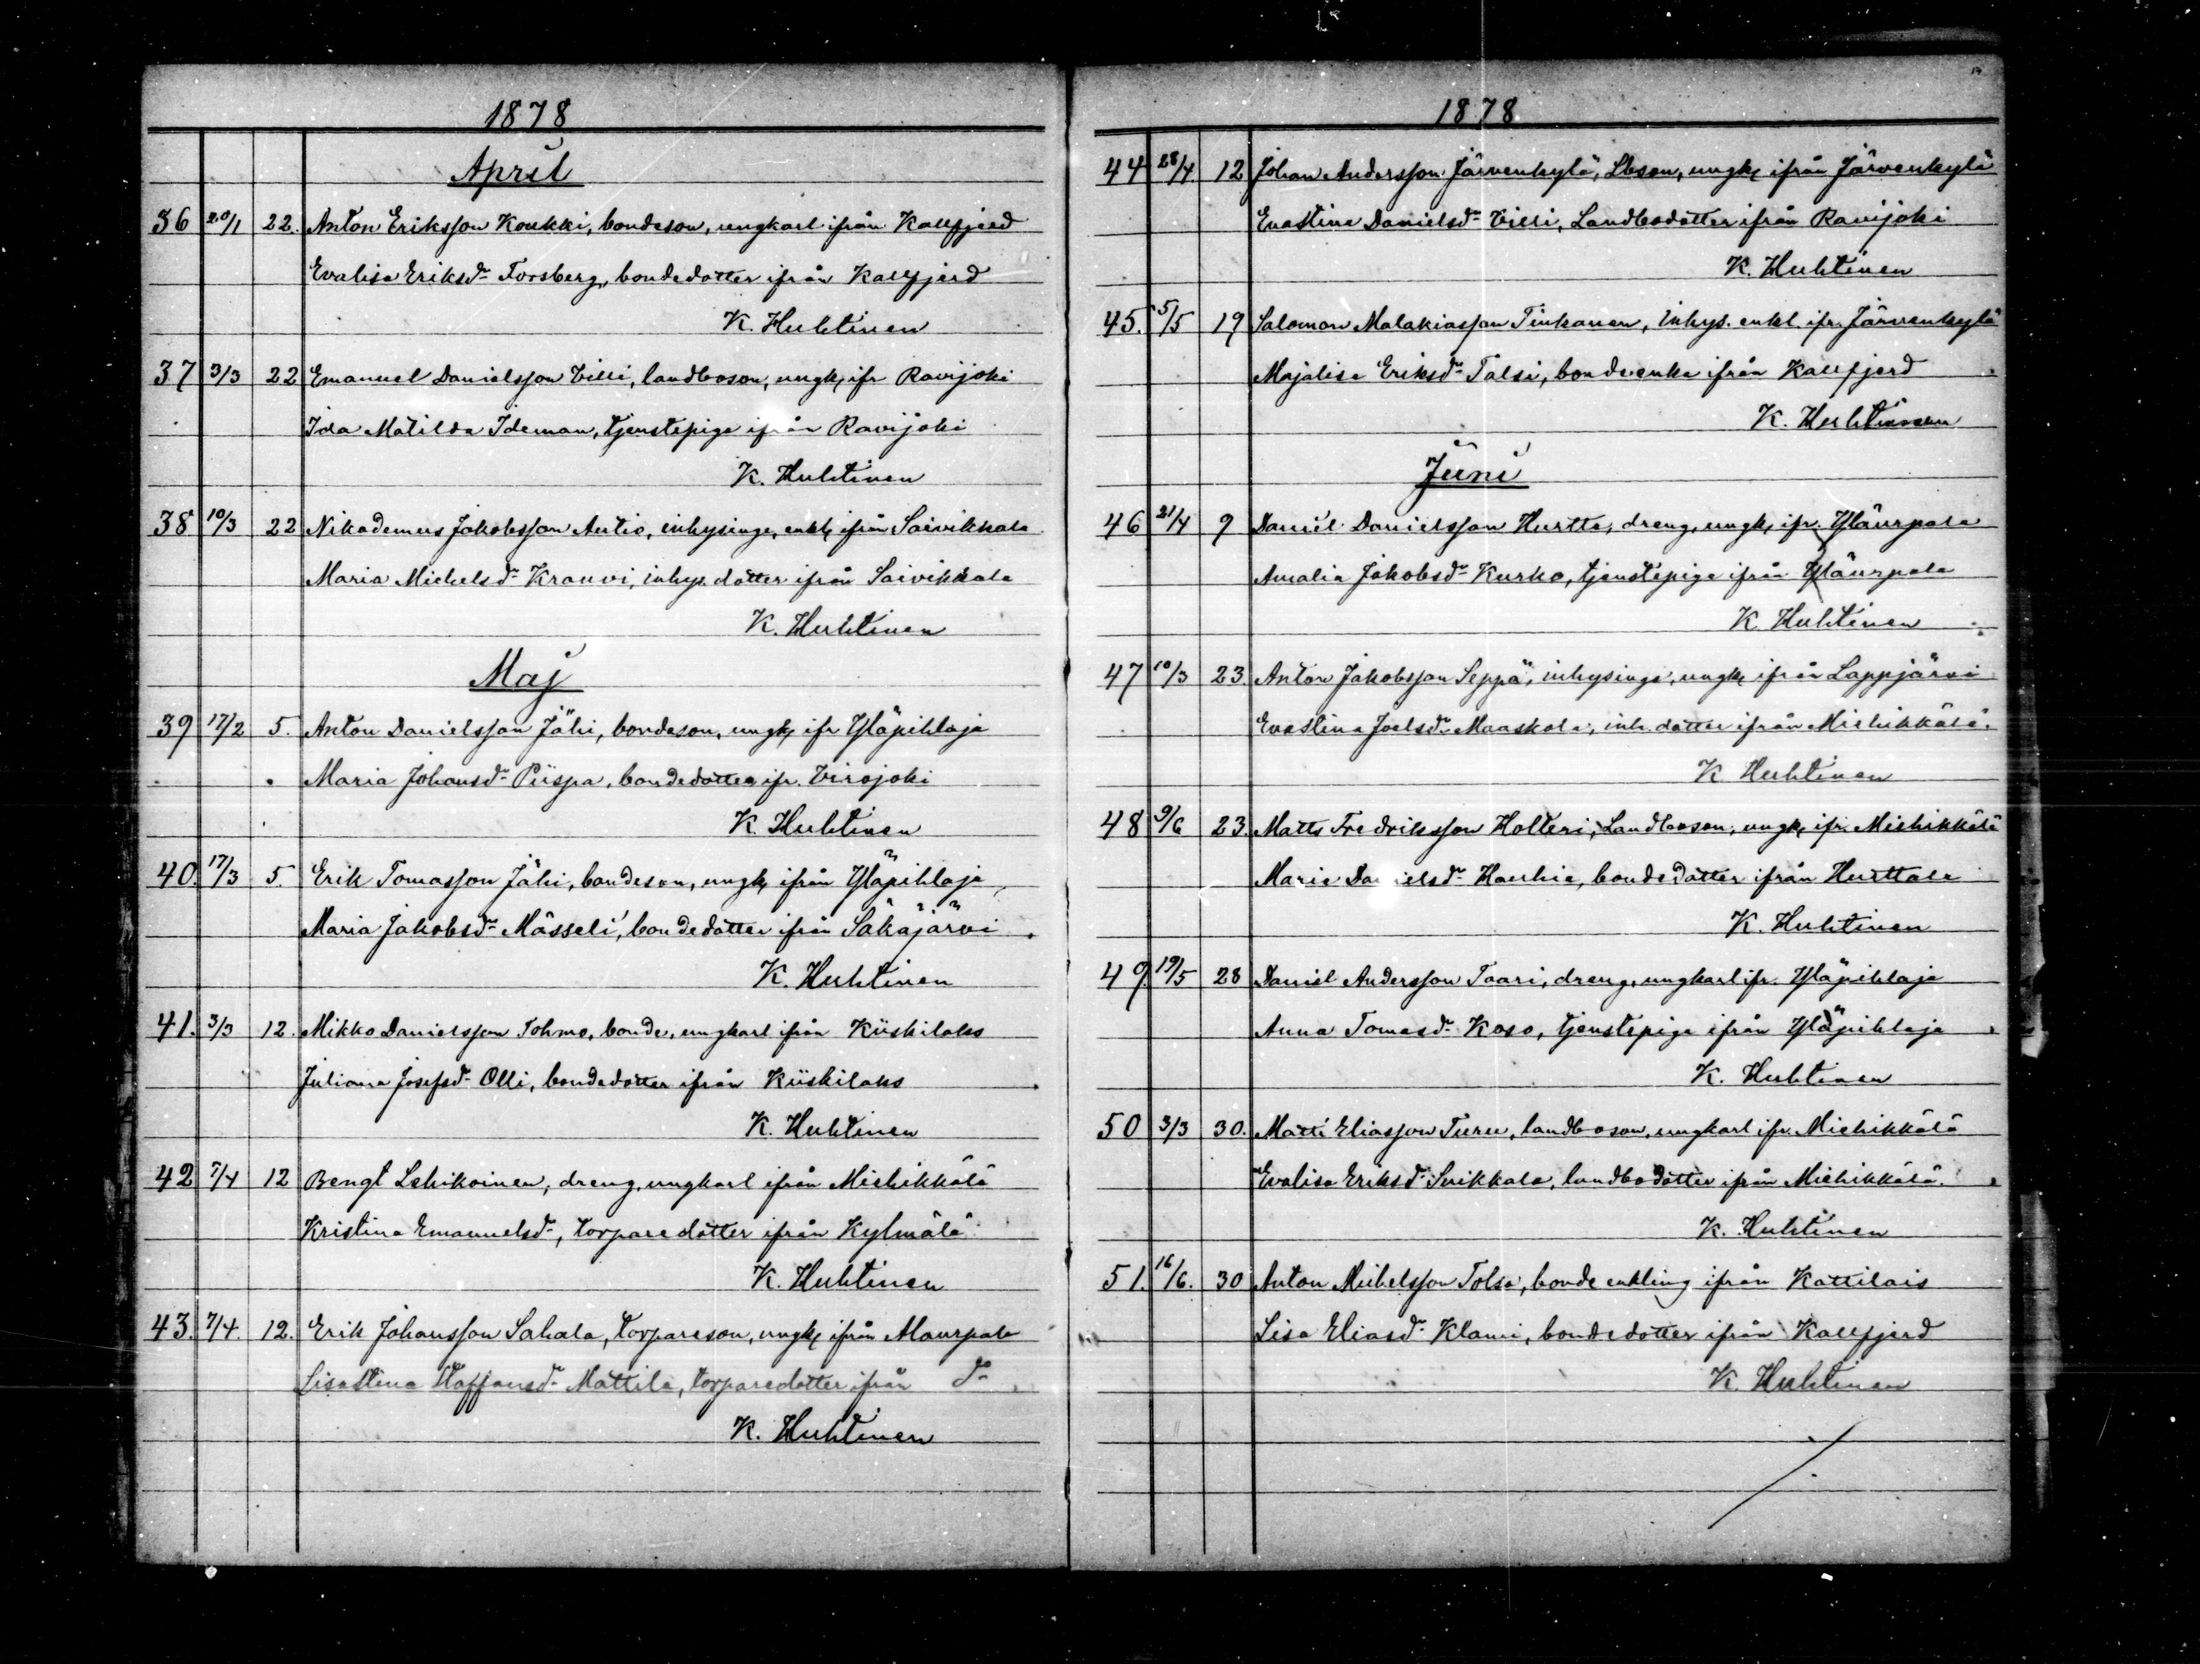 1878
April
36 20/1 22. Anton Eriksson Koukki, bondeson, ungkarl ifrån Kallfjerd
Evalisa Eriksdr Forsberg, bondedotter ifrån Kallfjerd
K. Huhtinen
37 3/3 22 Emanuel Danielsson Villi, landboson, ungk, ifr Ravijoki
Ida Matilda Ideman, tjenstepiga ifrån Ravijoki
K. Huhtinen
38 10/3 22 Nikademus Jakobsson Autio, inhysinge, enkl, ifrån Saivikkala
Maria Michelsdr Kranvi, inhys. dotter ifrån Saivikkala
K. Huhtinen
Maj
39 17/2 5. Anton Danielsson Jähi, bondeson, ungk, ifr Yläpihlaja
Maria Johansdr Piispa, bondedotter ifr. Virojoki
K. Huhtinen
40. 17/3 5. Erik Tomasson Jähi, bondeson, ungk, ifrån Yläpihlaja
Maria Jakobsdr Mässeli, bondedotter ifrån Säkäjärvi
K. Huhtinen
41. 3/3 12. Mikko Danielsson Tohmo, bonde, ungkarl ifrån Kiiskilaks
Juliana Josefsdr Olli, bondedotter ifrån Kiiskilaks
K. Huhtinen
42 7/4 12 Bengt Lehikoinen, dreng, ungkarl ifrån Miehikkälä
Kristina Emanuelsdr, torparedotter ifrån Kylmälä
K. Huhtinen
43. 7/4. 12. Erik Johansson Sahala, torpareson, ungk, ifrån Maurpala
Lisastina Staffansdr Mattila, torparedotter ifrån dr
K. Huhtinen
1878
44 28/4. 12 Johan Andersson Järvenkylä, Lbson, ungk, ifrån Järvenkylä
Evastina Danielsdr Villi, Landbodotter ifrån Ravijoki
K. Huhtinen
45. 5/5 19 Salomon Malakiasson Tinkanen, inhys. enkl. ifr. Järvenkylä
Majalisa Eriksdr Talsi, bondeenka ifrån Kallfjerd
K. Huhtinen
Juni
46 21/4 9 Daniel Danielsson Hurtta, dreng, ungk, ifr. Yläurpala
Amalia Jakobsdr Kurko, tjenstepiga ifrån Yläurpala
K. Huhtinen
47 10/3 23. Anton Jakobsson Seppä, inhysinge, ungk, ifrån Lappjärvi
Evastina Joelsdr Maaskola, inh. dotter ifrån Miehikkälä.
K. Huhtinen
48 9/6 23. Matts Fredriksson Holteri, Landboson, ungk, ifr. Miehikkälä
Maria Danielsdr Hauhia, bondedotter ifrån Hurttala
K. Huhtinen
49. 19/5 28 Daniel Andersson Taari, dreng, ungkarl ifr. Yläpihlaja
Anna Tomasdr Koso, tjenstepiga ifrån Yläpihlaja
K. Huhtinen
50 3/3 30. Matti Eliasson Turu, landboson, ungkarl ifr. Miehikkälä
Evalisa Eriksdr Suikkala, landbodotter ifrån Miehikkälä.
K. Huhtinen
51. 16/6. 30 Anton Michelsson Tolsa, bonde enkling ifrån Kattilais
Lisa Eliasdr Klami, bondedotter ifrån Kallfjerd
K. Huhtinen